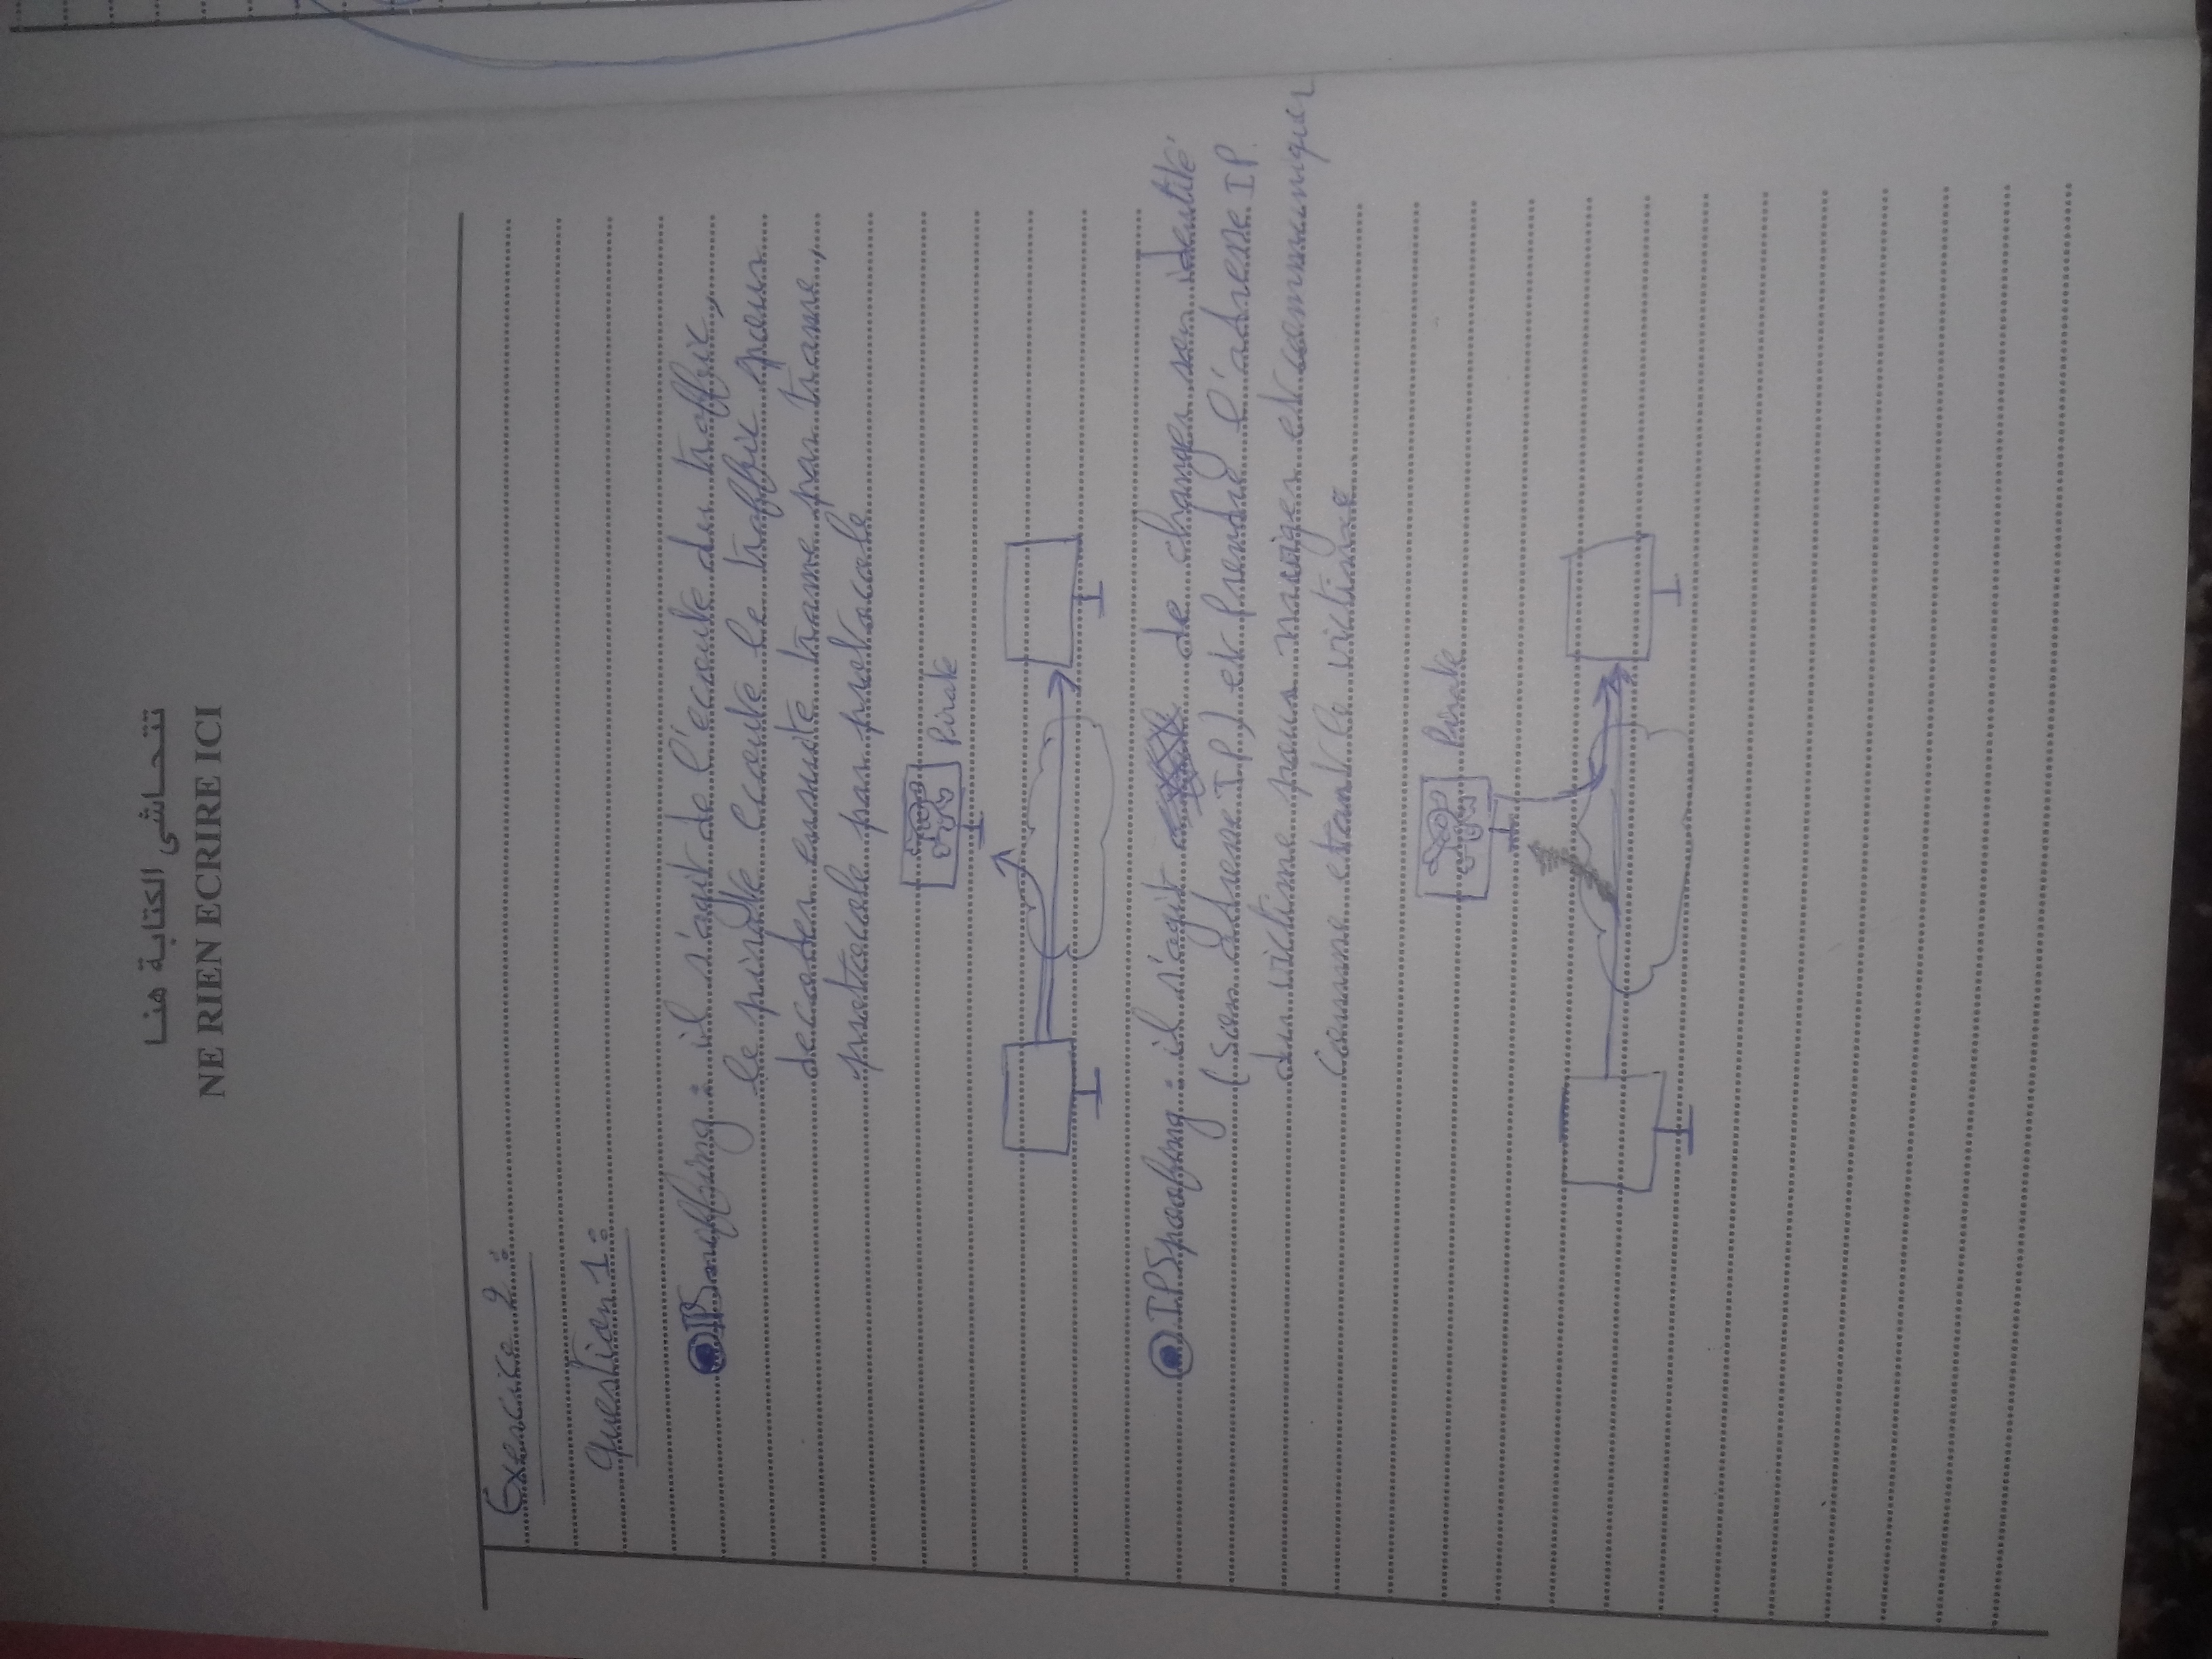 تتحاشى الكتابة هنا
NE RIEN ECRIRE ICI
Exercice 2 :
question 1 :
IPSniffing : il s'agit de l'ecoute du traffic,
le pirate ecoute le traffic pour
decoder ensuite trame par trame,
protocole par protocole
Pirate
IPSpoofing : il s'agit de changer son identité
(son adresse IP) et Prendre l'adresse IP
du victime pour naviger et communiquer
comme etant le victime
Pirate